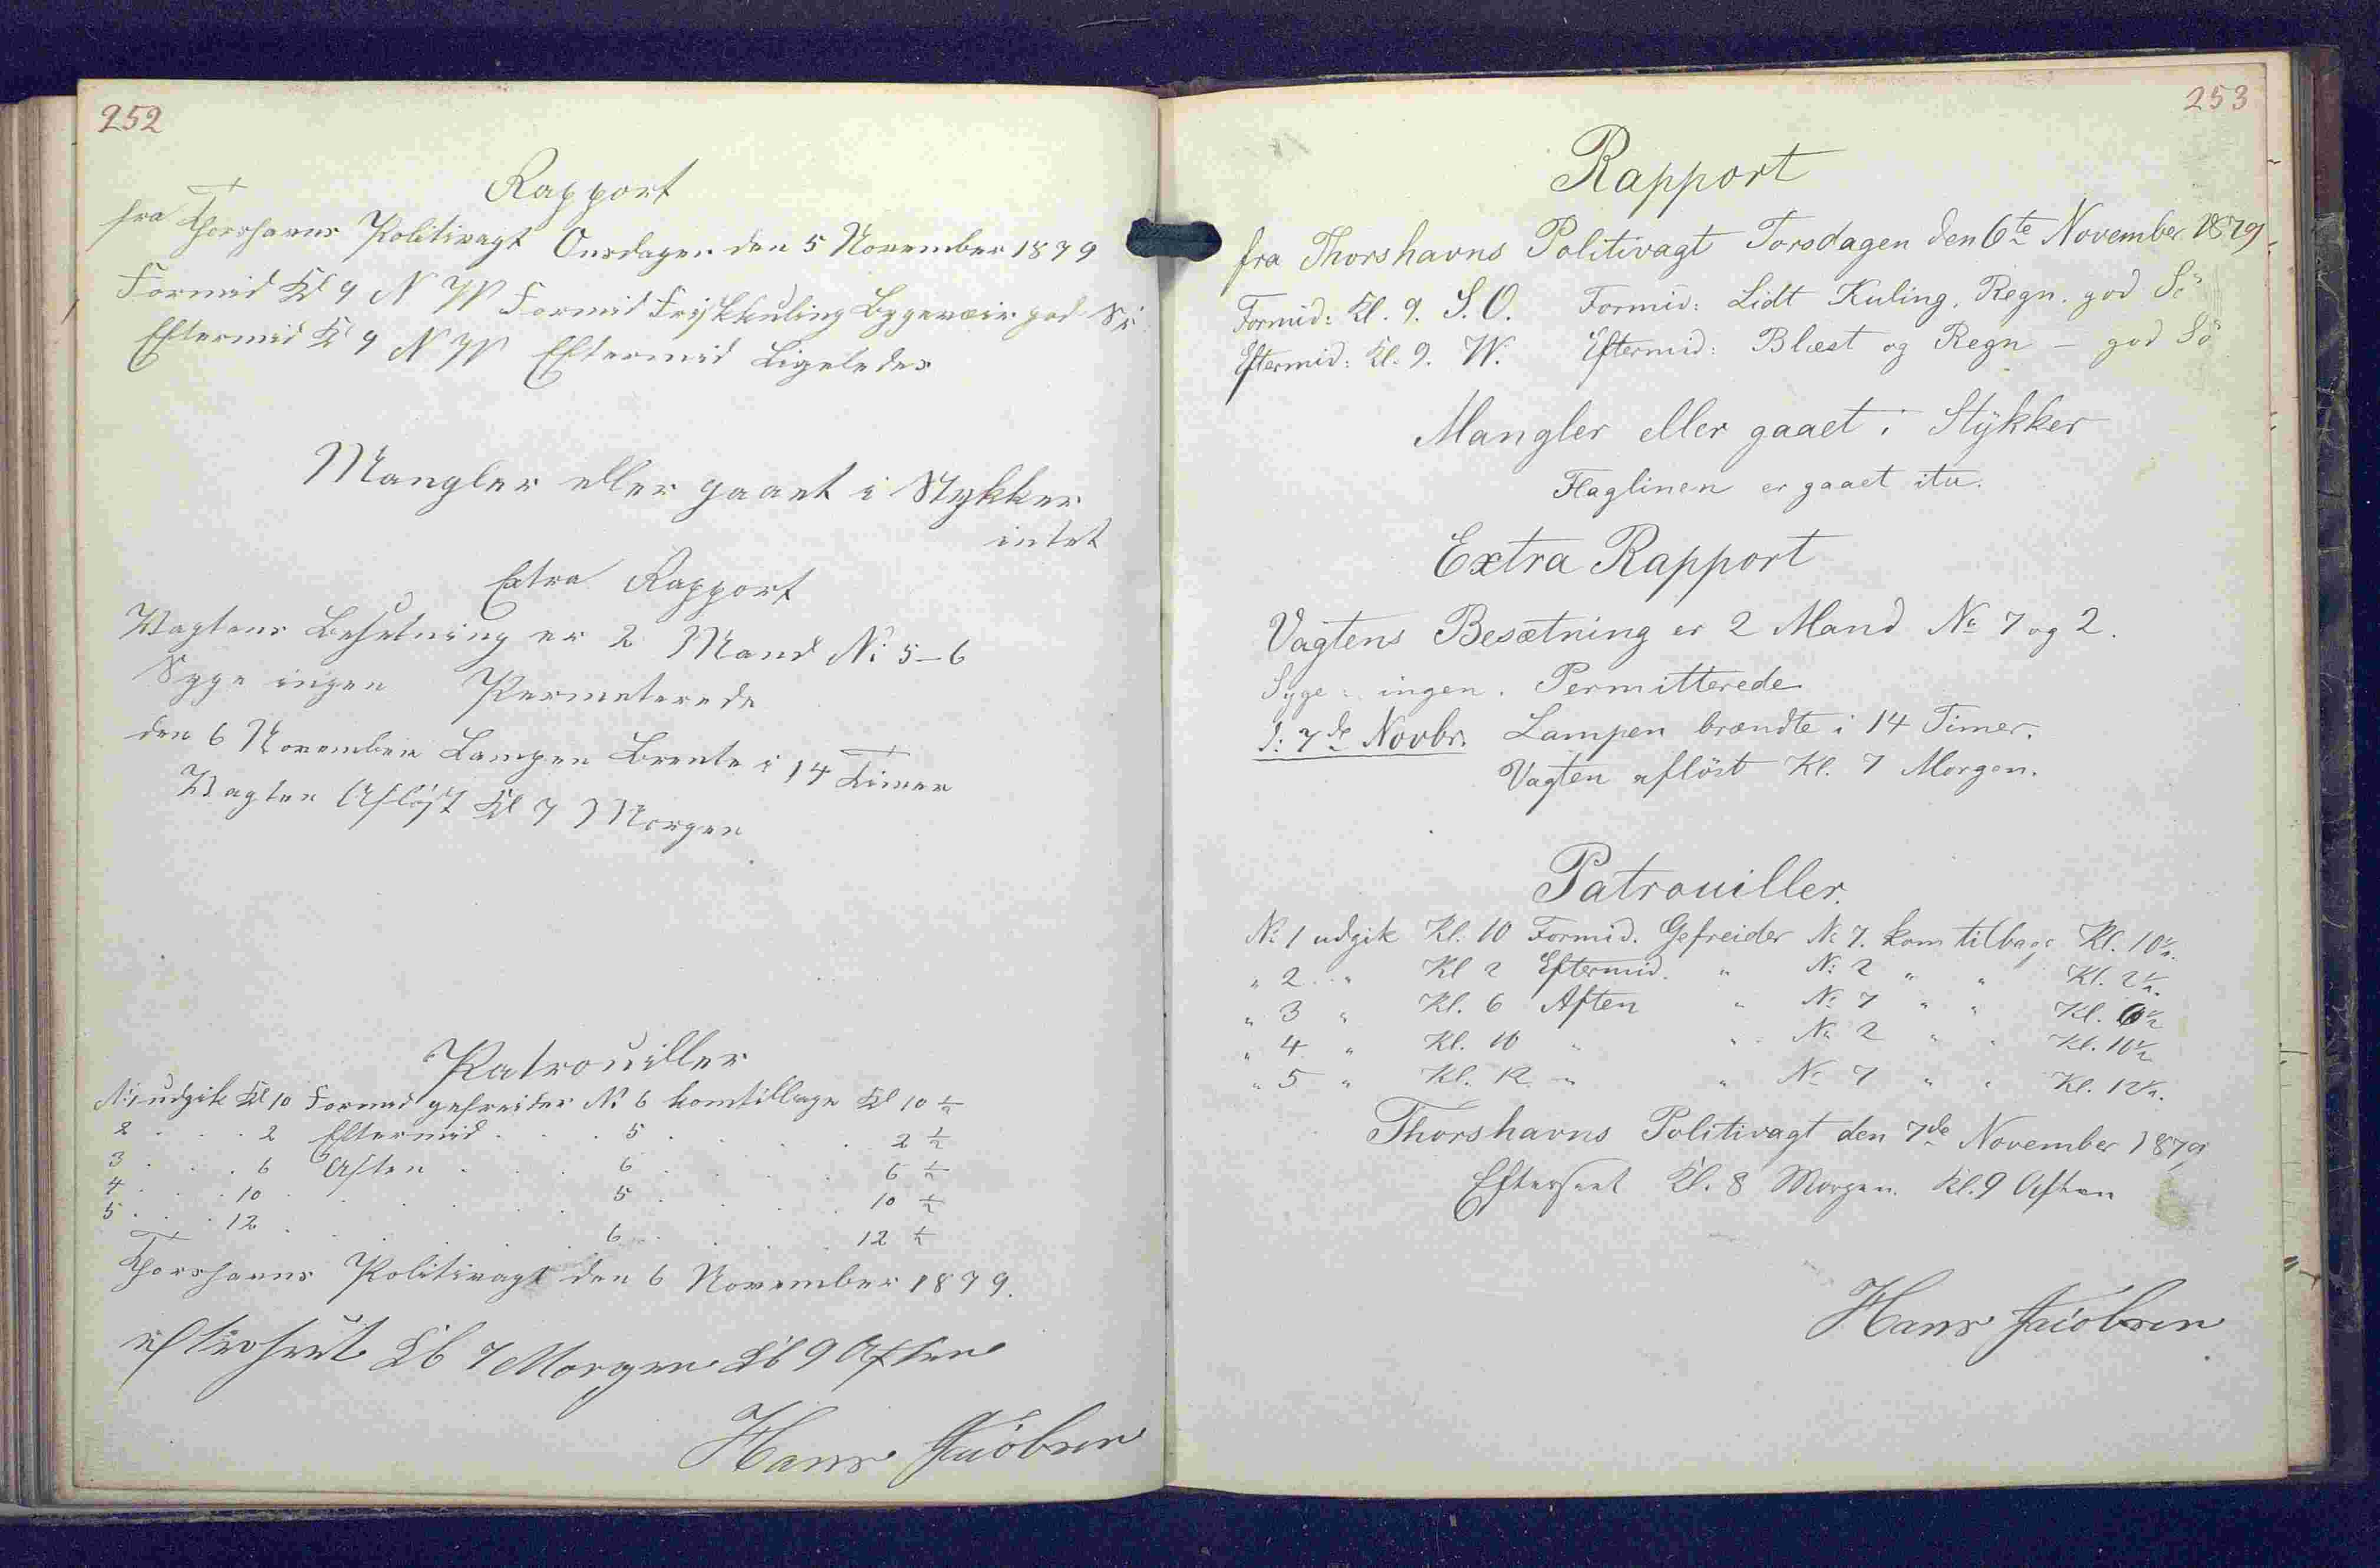 252
Rapport
fra Thorshavns Politivagt Onsdagen den 5 November 1879
Formid Kl 9 N W Formid Friskkuling Bygeveir god Sö
Eftermid Kl 9 N W Eftermid Ligeledes
Mangler eller gaaet i Stykker
intet
Extra Rapport
Vagtens Besetning er 2 Mand No 5-6
Syge ingen Permeterede
den 6 November Lampen Brente i 14 Timer
Vagten Afløst Kl 7 Morgen
Patrouiller
No 1 udgik Kl 10 Formid gefreider No 6 kom tilbage Kl 10 1/2
2 . . . 2 Eftermid . . . 5 . . . . 2 1/2
3 . . . 6 Aften . . . 6 . . . . 6 1/2
4 . . . 10 . . . . 5 . . . . 10 1/2
5 . . . 12 . . . . 6 . . . . 12 1/2
Thorshavns Politivagt den 6 November 1879.
efterseet Kl 7 Morgen Kl 9 Aften
Hans Jacobsen
253
Rapport
fra Thorshavns Politivagt Torsdagen den 6te November 1879.
Formid: Kl. 9. S.O. Formid: Lidt Kuling, Regn. god Sö
Eftermid: Kl. 9. W. Eftermid: Blæst og Regn - god Sö
Mangler eller gaaet i Stykker
Flaglinen er gaaet itu.
Extra Rapport
Vagtens Besætning er 2 Mand No 7 og 2.
Syge: ingen. Permitterede
d: 7de Novbr. Lampen brændte i 14 Timer.
Vagten aflöst Kl. 7 Morgen.
Patrouiller.
No 1 udgik Kl. 10 Formid. Gefreider No 7. kom tilbage Kl. 10 1/2.
" 2 " Kl 2 Eftermid. " No 2 " " Kl. 2 1/2.
" 3 " Kl. 6 Aften " No 7 " " Kl. 6 1/2
" 4 " Kl. 10 " " No 2 " " Kl. 10 1/2
" 5 " Kl. 12 " " No 7 " " Kl. 12 1/2.
Thorshavns Politivagt den 7de November 1879
Efterseet Kl. 8 Morgen. Kl. 9 Aften
Hans Jacobsen